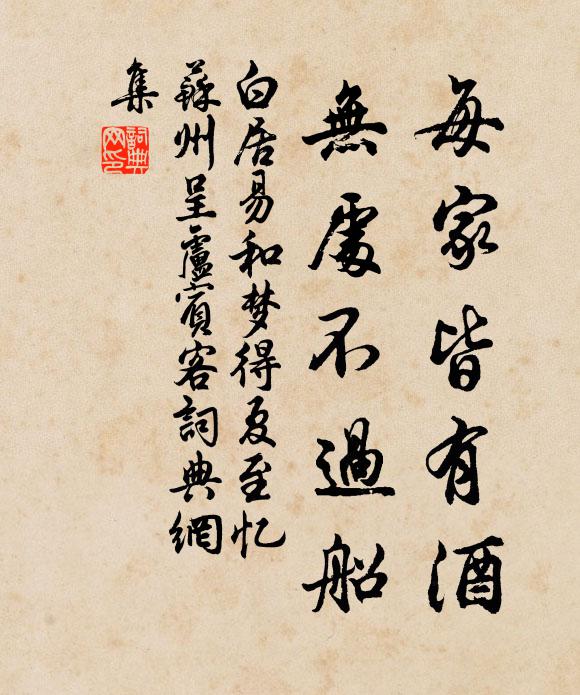 每家皆有酒
無處不過船
白居易和梦得夏至忆
蘇州呈盧賓客詞典網
集
詞典
网印